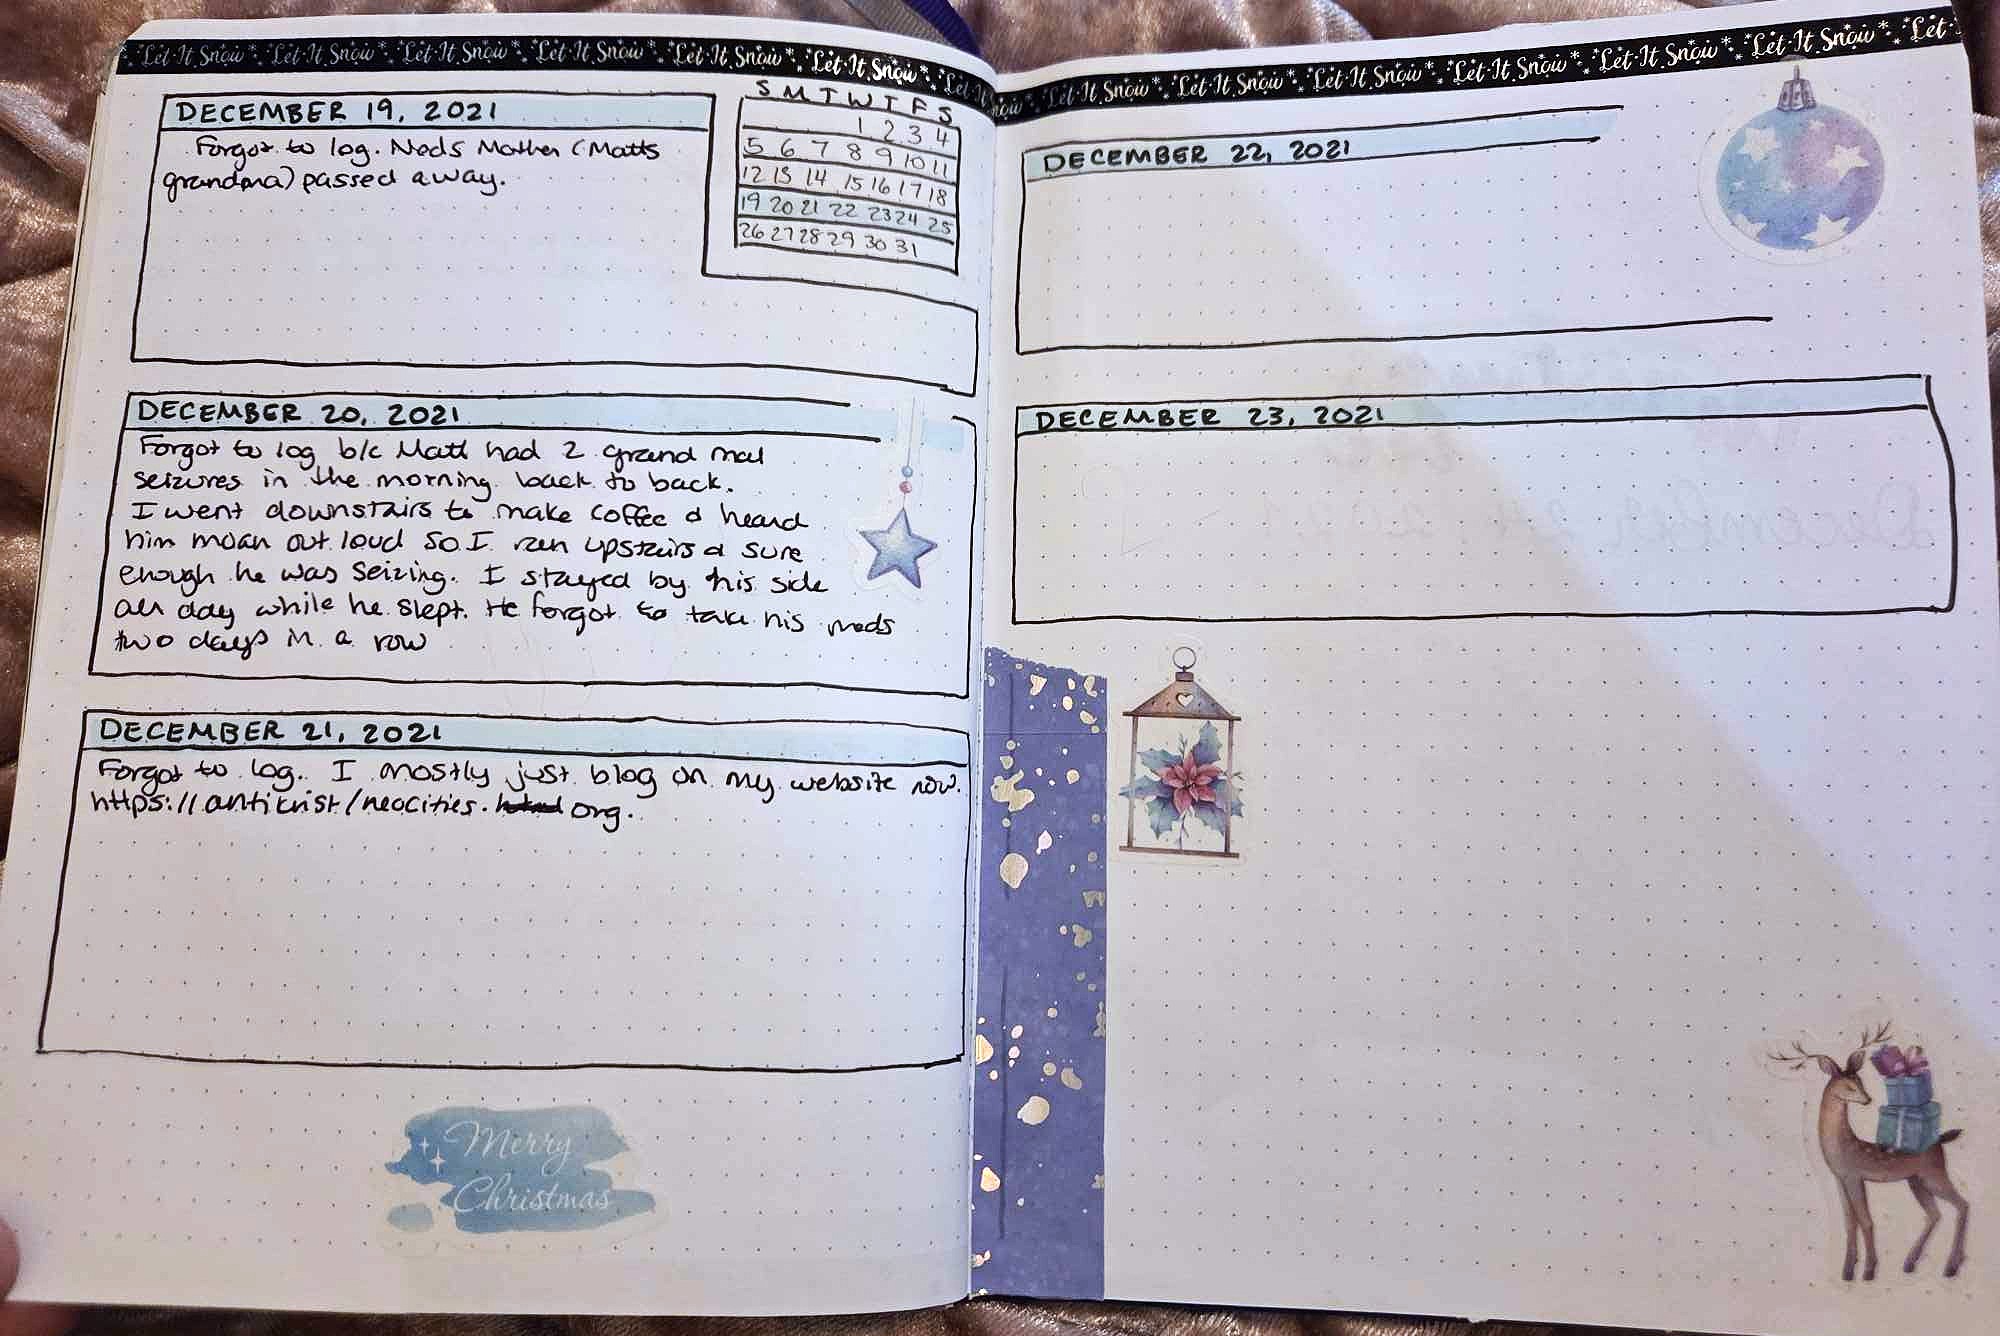 Let It Snow Let It Snow Let It Snow Let It Snow Let It Snow Let It Snow Let It
DECEMBER 19, 2021
Forgot to log. Neds Mother (Matts
grandma) passed away.
S M T W T F S
1 2 3 4
5 6 7 8 9 10 11
12 13 14 15 16 17 18
19 20 21 22 23 24 25
26 27 28 29 30 31
DECEMBER 20, 2021
Forgot to log b/c Matt had 2 grand mal
seizures in the morning back to back.
I went downstairs to make coffee & heard
him moan out loud so I ran upstairs & sure
enough he was seizing. I stayed by his side
all day while he slept. He forgot to take his meds
two days in a row
DECEMBER 21, 2021
Forgot to log. I mostly just blog on my website now.
https://antikrist/neocities. org.
Merry
Christmas
Snow Let It Snow Let It Snow Let It Snow Let It Snow Let It Snow Let It Snow Let It
DECEMBER 22, 2021
DECEMBER 23, 2021